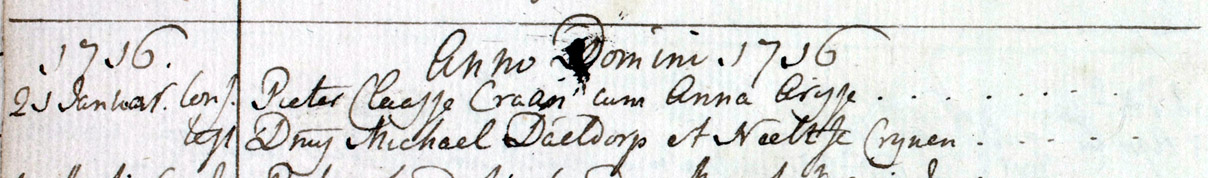 1716. Anno Domini 1716
21 Januar. Conj. Pieter Claasse Craan cum Anna Arisse . . . . . . . . .
test Dnus Michael Daeldorp et Neeltse Crynen . . . .